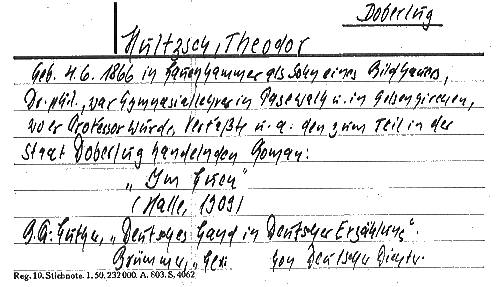 Doberlug
Hültzsch, Theodor
Geb. 4.6. 1866 in Lauchhammer als Sohn eines Bildhauers,
Dr. phil., war Gymnasiallehrer in Pasewalk u. in Gelsenkirchen,
wo er Professor wurde, verfaßte u. a. den zum Teil in der
Stadt Doberlug handelnden Roman:
„Im
(Halle, 1909)
„Deutsches Land in Deutscher Erzählung".
Brümmer, „Lexi von Deutscher Dichter
Reg. 10. Stichnote. 1. 50. 232 000. A. 803. S. 4062